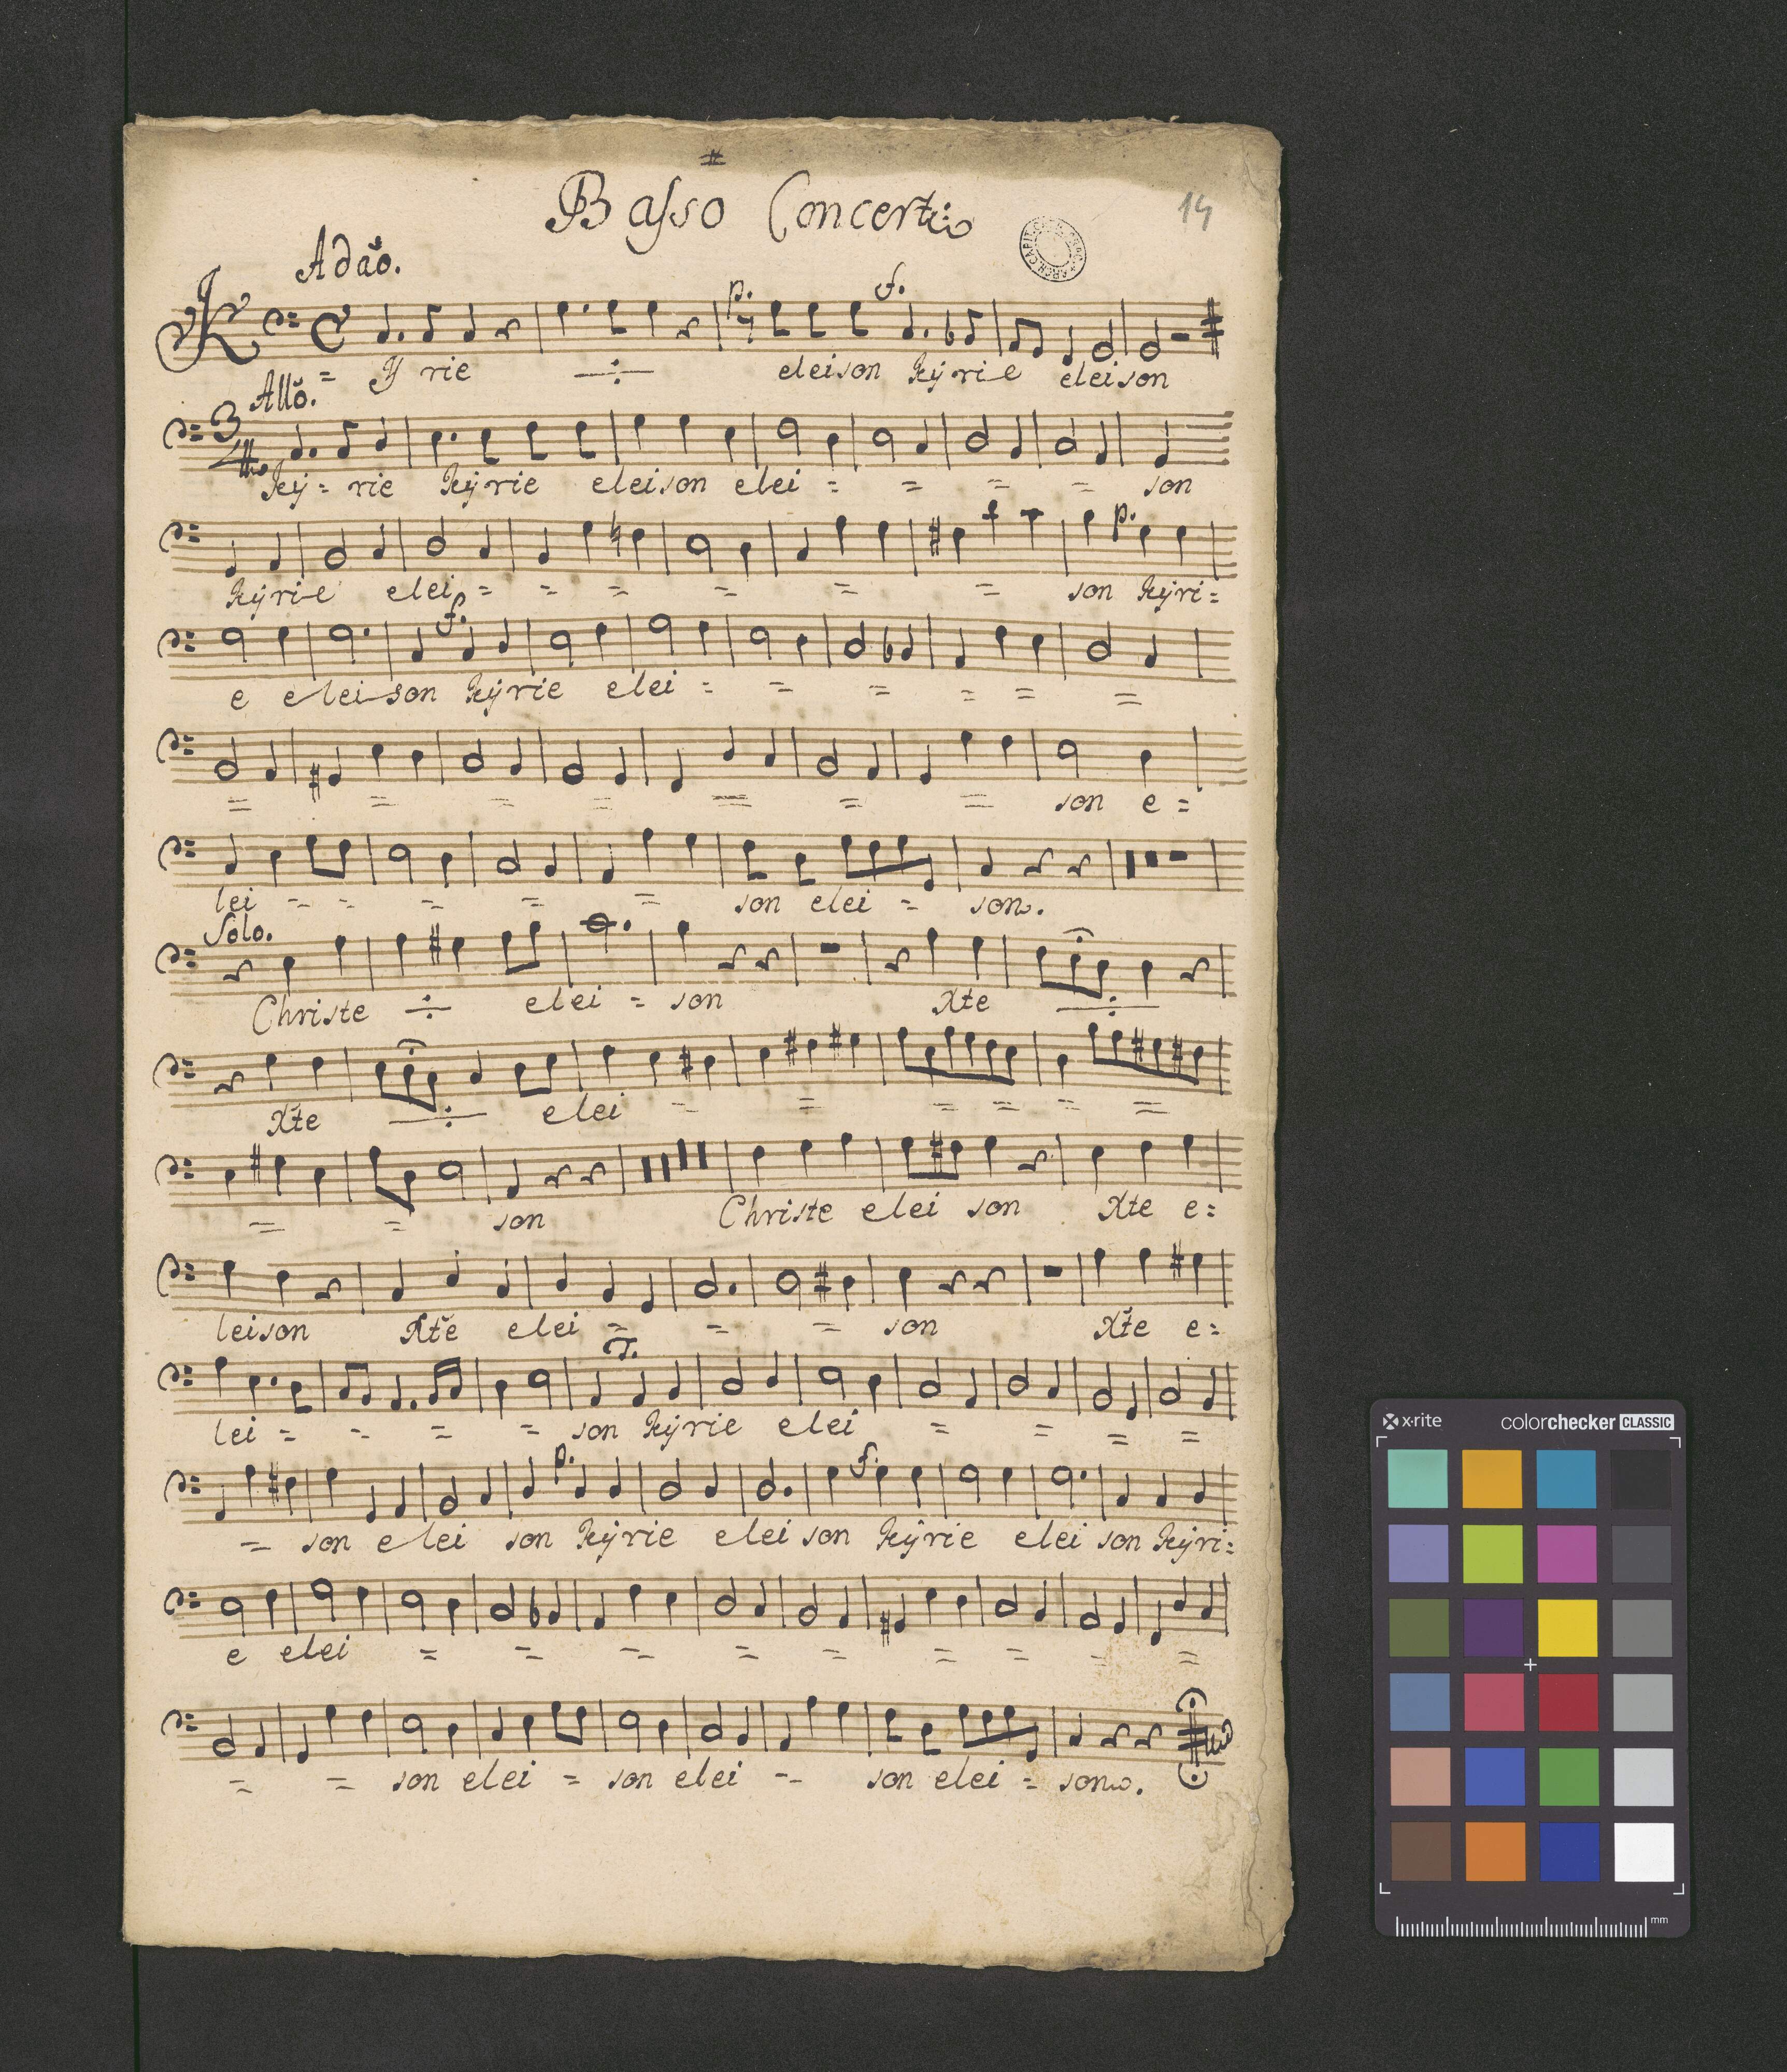 #
Basso Concerto
14
Adaő.
p. f.
Kyrie ÷ eleison kÿrie eleison
Allő.
3
4
kÿ = rie kÿrie eleison elei = = = = son
p.
kÿrie elei = = = = = = son kÿri =
f.
e eleison kÿrie elei = = = = = =
= = = = = = = son e =
lei = = = = = son elei = son.
Solo.
Christe ÷ elei = son Xte ÷
Xte ÷ elei = = = = = =
= = son Christe elei son Xte e =
leison Xte elei = = = son Xte e =
T.
lei = = = = son kÿrie elei = = = =
p. f.
= son elei son kÿrie elei son kÿrie elei son kÿri =
e elei = = = = = = = = =
= = son elei = son elei = son elei = son.
x·rite colorchecker CLASSIC
mm